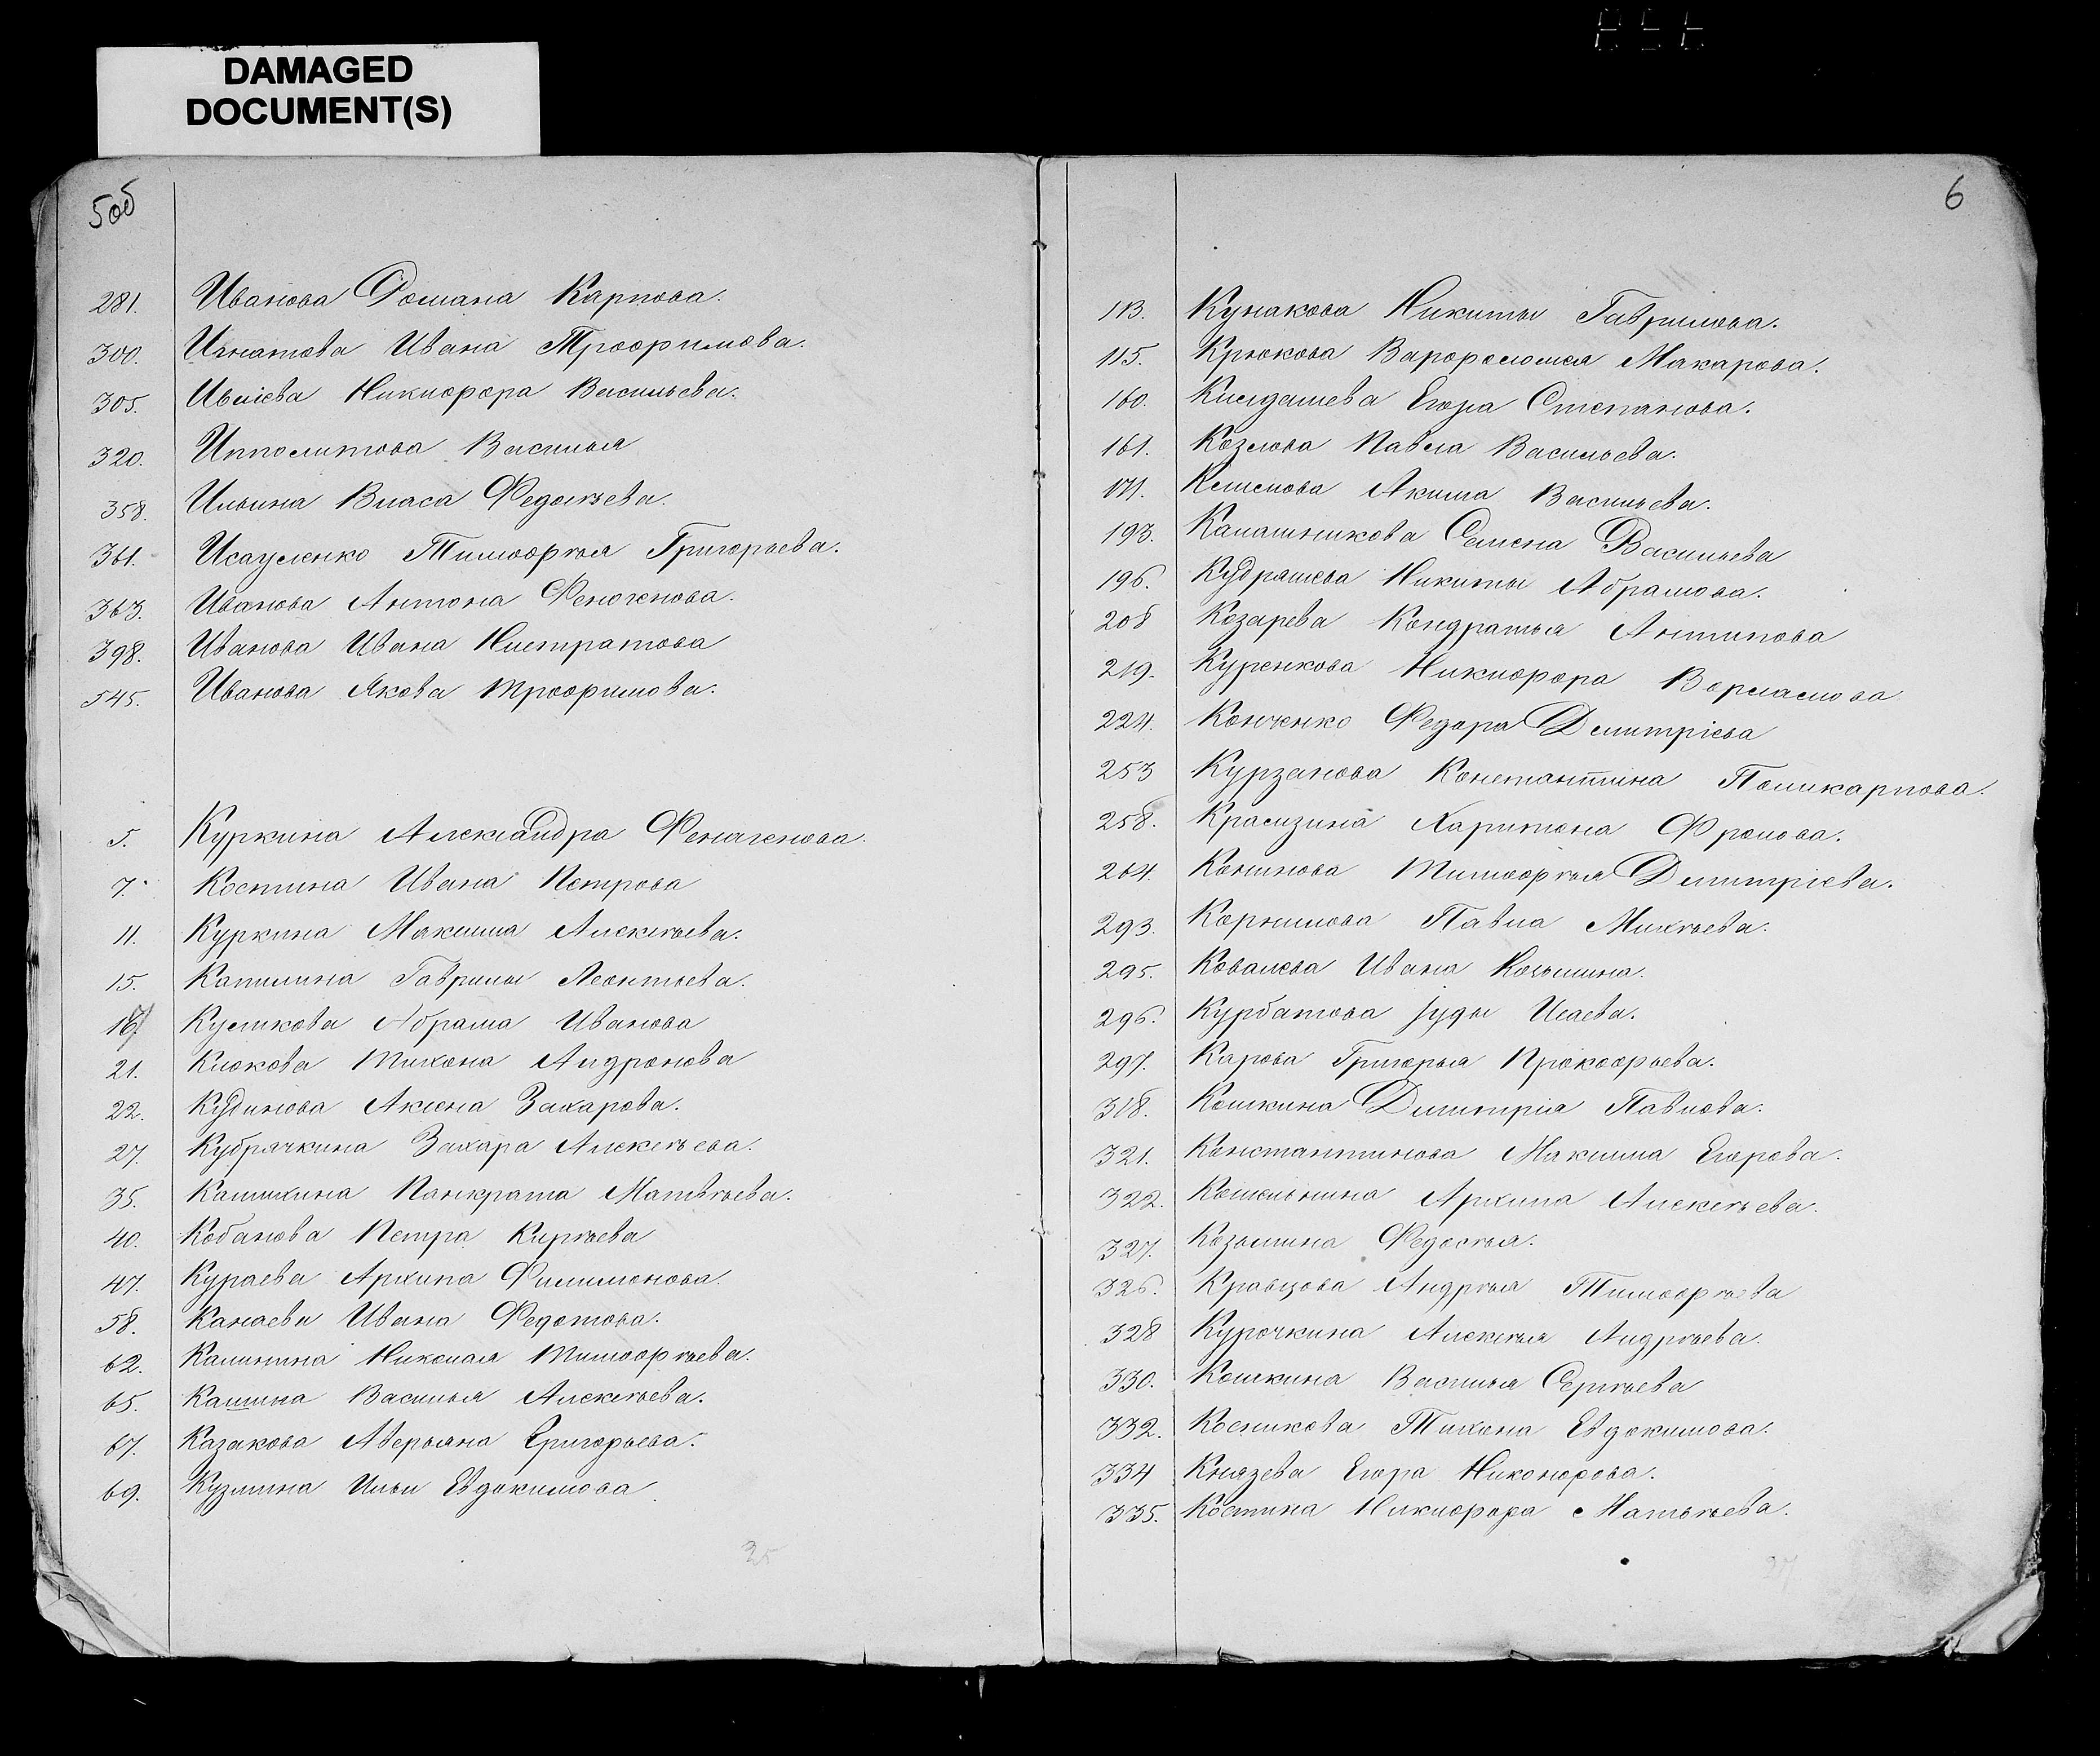 DAMAGED
DOCUMENT(S)
5об
281. Иванова Романа Карпова.
300. Игнатова Ивана Трофимова.
305. Ивлiева Никифора Васильева.
320. Ипполитова Василья
358. Ильина Власа Федосѣева.
361. Исауленко Тимофѣя Григорьева.
363. Иванова Антона Феногенова.
398. Иванова Ивана Нистратова
545. Иванова Якова Трофимова.
5. Куркина Александра Феногенова.
7. Костина Ивана Петрова
11. Куркина Максима Алексѣева.
15. Капилина Гаврилы Леонтьева.
Куликова Абрама Иванова
21. Клюкова Тихона Андронова
22. Кудинова Аксена Захарова.
27. Кубрячкина Захара Алексѣева.
35. Камихина Панкрата Матвѣева.
40. Кобанова Петра Кирѣева
47. Кураева Архипа Филимонова.
58. Канаева Ивана Федотова.
62. Калинина Николая Тимофѣева.
65. Кашина Василья Алексѣева.
67. Казакова Аверьяна Григорьева.
69. Кузмина Ильи Евдокимова
35
6
113. Кунакова Никиты Гаврилова.
115. Крюкова Варфоломея Макарова.
160. Килдашева Егора Степанова.
161. Козлова Павла Васильева.
171. Клименова Акима Васильева.
193. Калашникова Семена Васильева
196. Кудряшева Никиты Абрамова.
208 Козарева Кондратья Антипова
219. Куренкова Никифора Варламова
224. Конченко Федора Дмитрiева
253 Курзанова Константина Поликарпова.
258. Крамзина Харитона Фролова.
264. Конинова Тимофѣя Дмитрiева.
293. Корнилова Павла Михѣева.
295. Ковалева Ивана Козьмина.
296. Курбатова Iуды Исаева.
297. Карова Григорья Прокофьева.
318. Кошкина Дмитрiя Павлова.
321. Константинова Максима Егорова.
322. Кошельнина Архипа Алексѣева.
327. Козьмина Федосѣя.
326. Кравцова Андрѣя Тимофѣева
328 Курочкина Алексѣя Андрѣева.
330. Кошкина Василья Сергѣева
332. Косникова Тихона Евдокимова.
334 Князева Егора Никонорова.
335. Костина Никифора Матвѣева.
37